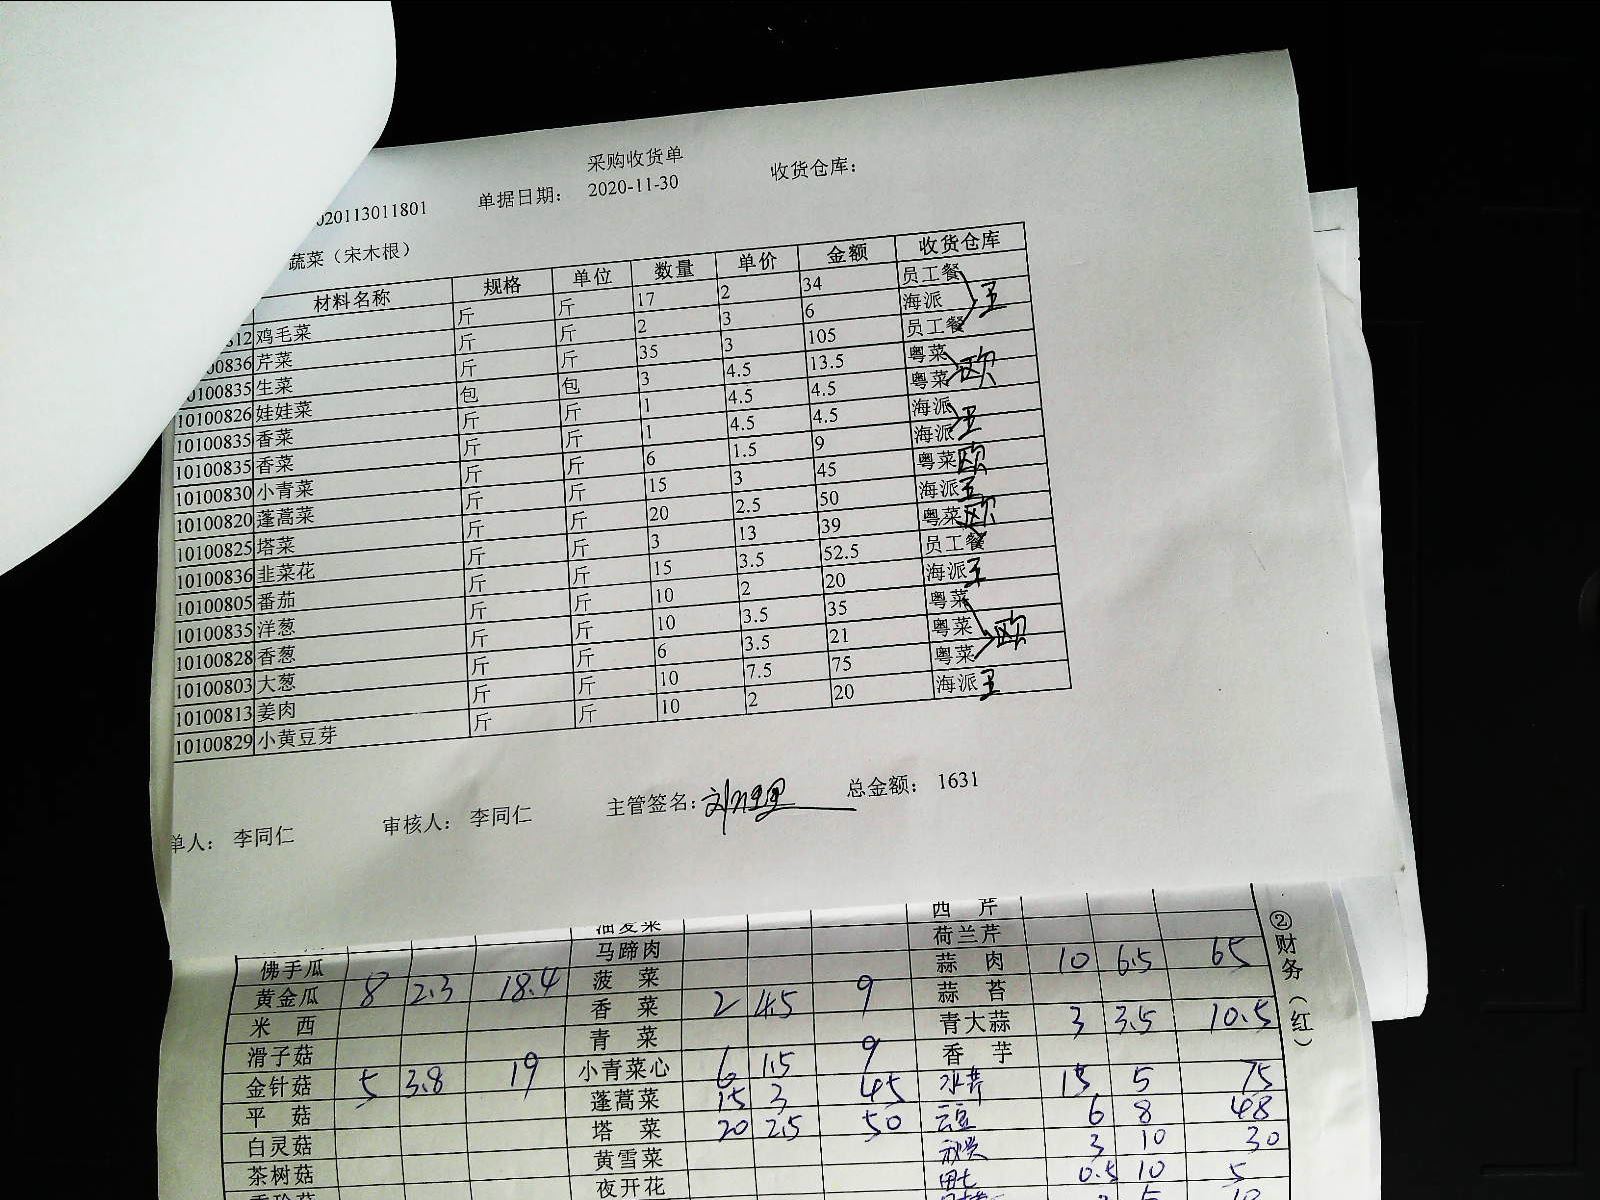 采购收货单
020113011801 单据日期： 2020-11-30 收货仓库：
蔬菜（宋木根）
材料名称 规格 单位 数量 单价 金额 收货仓库
812 鸡毛菜 斤 斤 17 2 34 员工餐
00836 芹菜 斤 斤 2 3 6 海派 王
0100835 生菜 斤 斤 35 3 105 员工餐
10100826 娃娃菜 包 包 3 4.5 13.5 粤菜 欧
10100835 香菜 斤 斤 1 4.5 4.5 粤菜
10100835 香菜 斤 斤 1 4.5 4.5 海派 王
10100830 小青菜 斤 斤 6 1.5 9 海派
10100820 蓬蒿菜 斤 斤 15 3 45 粤菜 欧
10100825 塔菜 斤 斤 20 2.5 50 海派 王
10100836 韭菜花 斤 斤 3 13 39 粤菜 欧
10100805 番茄 斤 斤 15 3.5 52.5 员工餐
10100835 洋葱 斤 斤 10 2 20 海派 王
10100828 香葱 斤 斤 10 3.5 35 粤菜
10100803 大葱 斤 斤 6 3.5 21 粤菜 欧
10100813 姜肉 斤 斤 10 7.5 75 粤菜
10100829 小黄豆芽 斤 斤 10 2 20 海派 王
单人： 李同仁 审核人： 李同仁 主管签名： 总金额： 1631
油麦菜 西芹
佛手瓜 马蹄肉 荷兰芹
黄金瓜 8 2.3 18.4 菠菜 蒜肉 10 6.5 65
米西 香菜 2 4.5 9 蒜苔
滑子菇 青菜 青大蒜 3 3.5 10.5
金针菇 5 3.8 19 小青菜心 6 1.5 9 香芋
平菇 蓬蒿菜 15 3 45 水芹 15 5 75
白灵菇 塔菜 20 2.5 50 云豆 6 8 48
茶树菇 黄雪菜 3 10 30
夜开花 0.5 10 5
②财务（红）